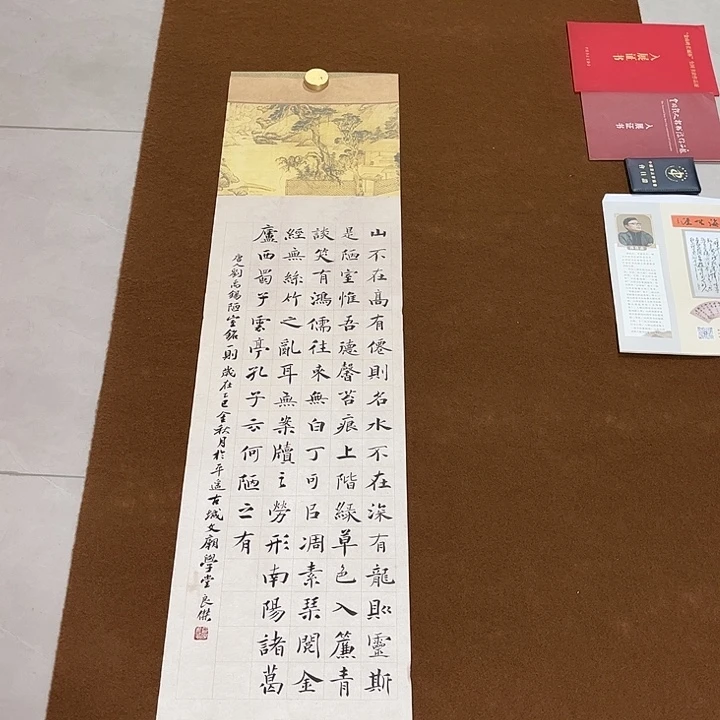 山不在高有僊則名水不在深有龍則靈斯
是陋室惟吾德馨苔痕上階緑草色入簾青
談笑有鴻儒往來無白丁可㠯調素琴閱金
經無絲竹之亂耳無案牘之勞形南陽諸葛
廬西蜀子雲亭孔子云何陋之有
唐人劉禹錫陋室銘一則歲在乙巳金秋月於平遙古城文廟學堂良傑
入展证书
入展证书
會員證